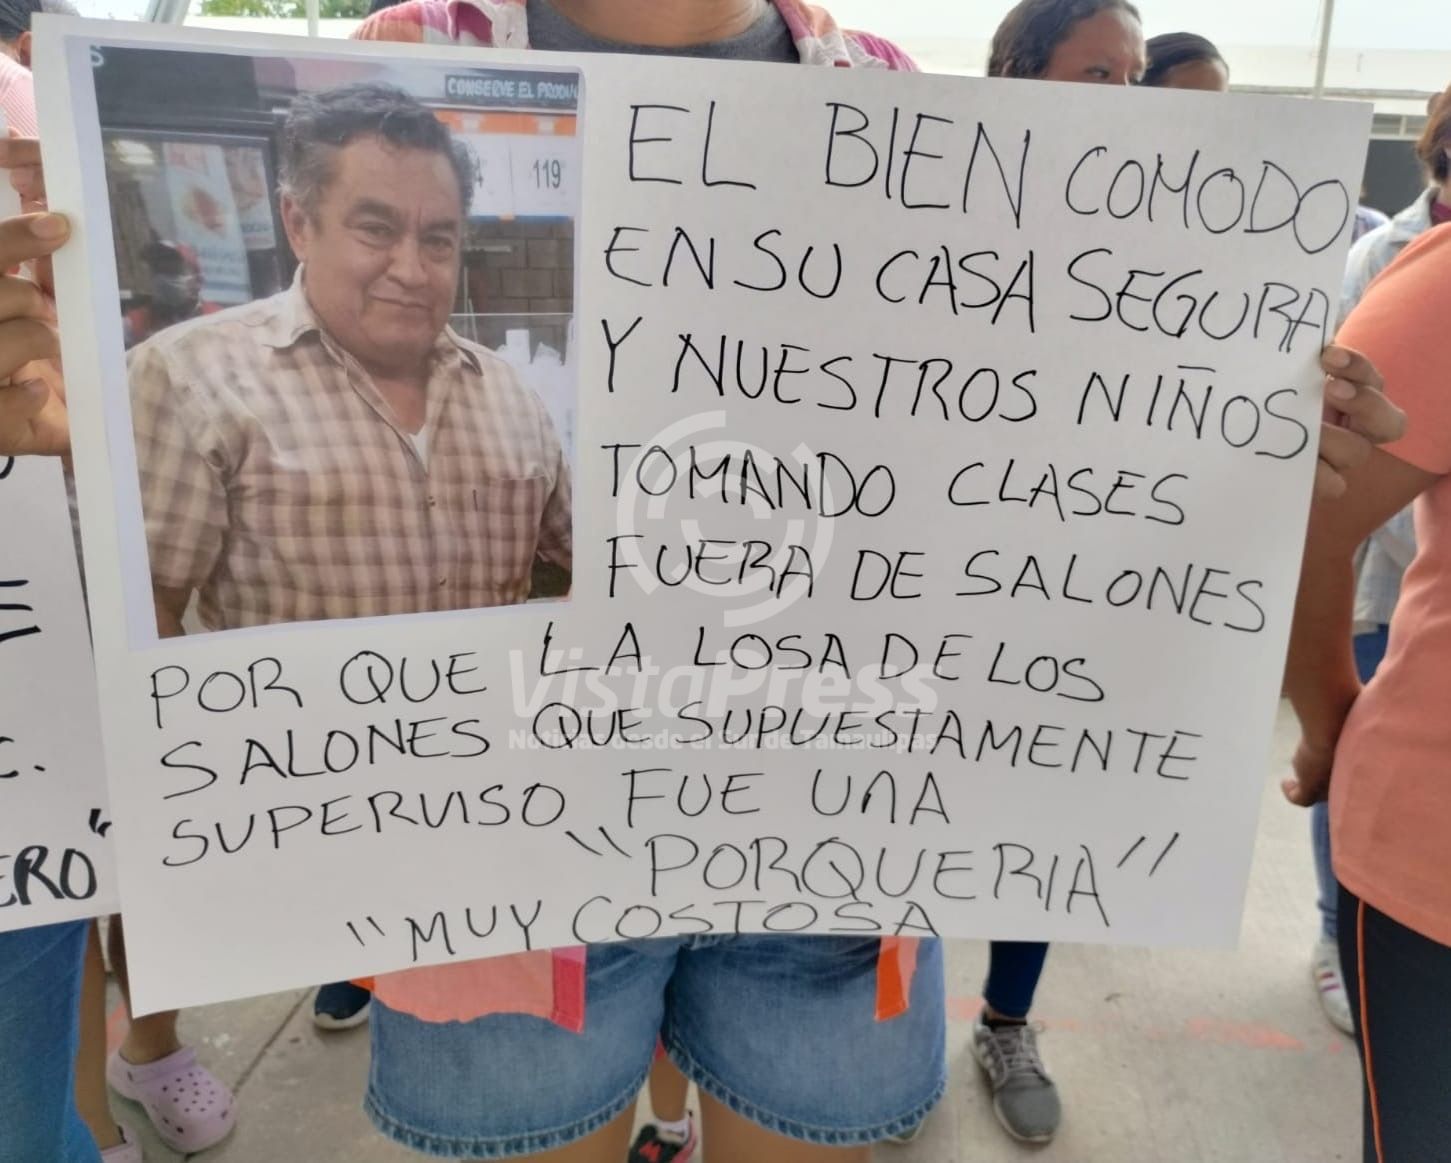 CONSERVE EL PRODU
119
EL BIEN COMODO
EN SU CASA SEGURA
Y NUESTROS NIÑOS
TOMANDO CLASES
FUERA DE SALONES
POR QUE LA LOSA DE LOS
SALONES QUE SUPUESTAMENTE
SUPERVISO FUE UNA
"PORQUERIA"
"MUY COSTOSA
VistaPress
Noticias desde el Sur de Tamaulipas
C.
ERO"